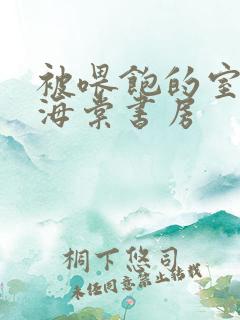 被喂饱的室
海棠书房
桐下悠司
未经同意禁止转载